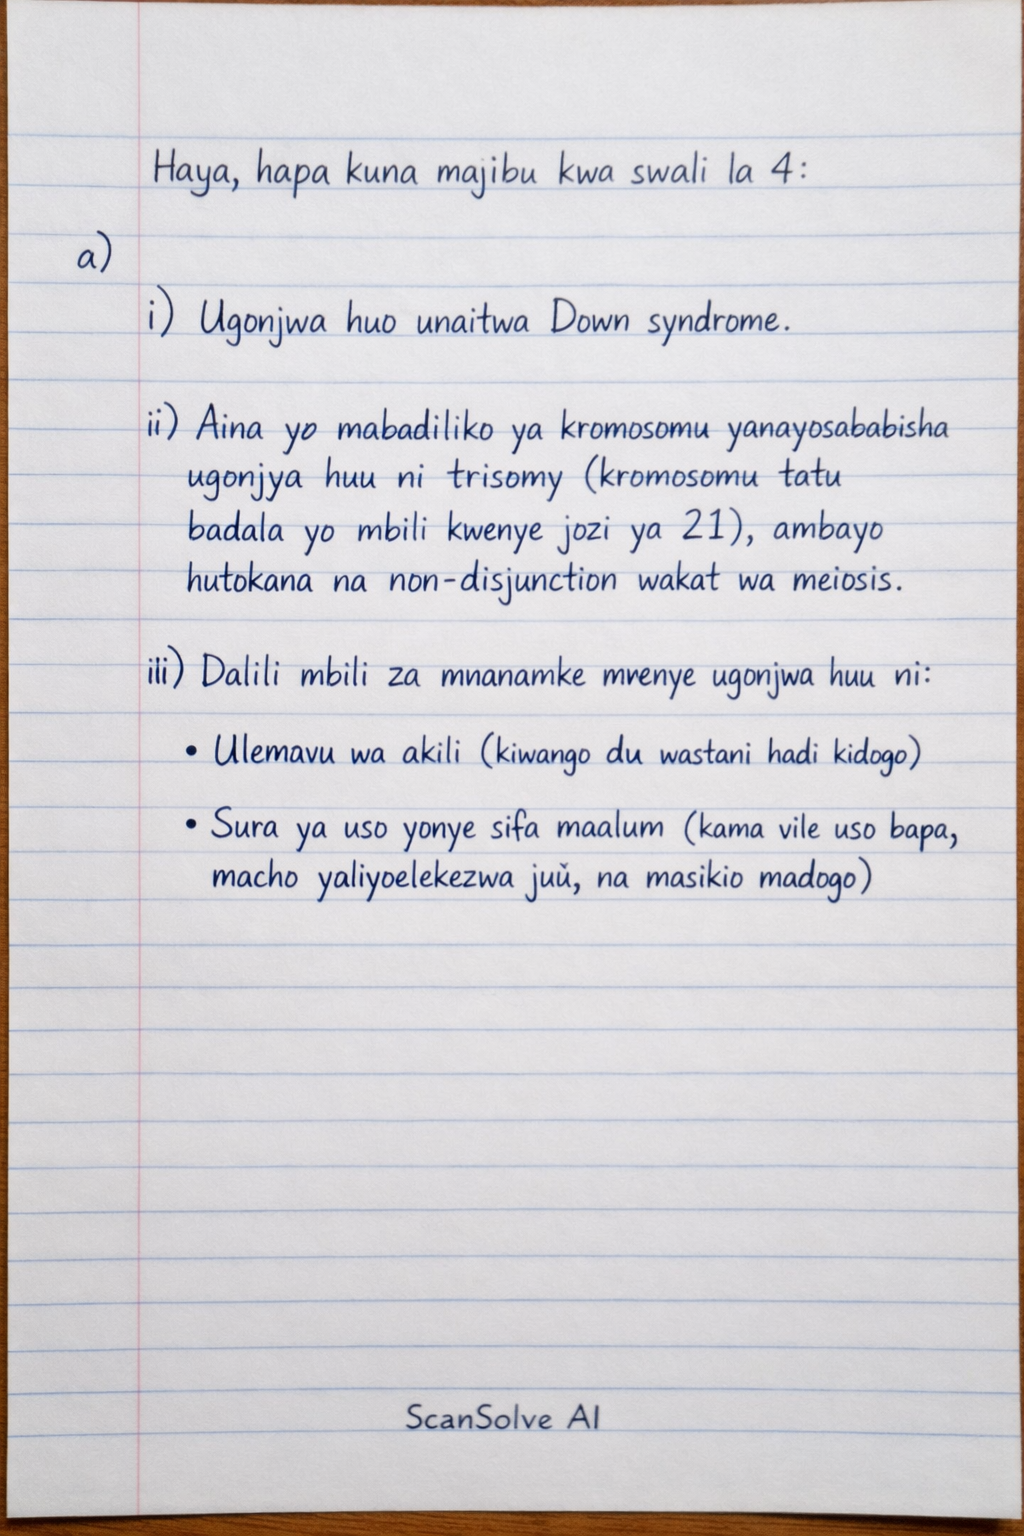 Haya, hapa kuna majibu kwa swali la 4:
a)
i) Ugonjwa huo unaitwa Down syndrome.
ii) Aina yo mabadiliko ya kromosomu yanayosababisha
ugonjya huu ni trisomy (kromosomu tatu
badala yo mbili kwenye jozi ya 21), ambayo
hutokana na non-disjunction wakat wa meiosis.
iii) Dalili mbili za mnanamke mrenye ugonjwa huu ni:
• Ulemavu wa akili (kiwango du wastani hadi kidogo)
• Sura ya uso yonye sifa maalum (kama vile uso bapa,
macho yaliyoelekezwa juŭ, na masikio madogo)
ScanSolve AI